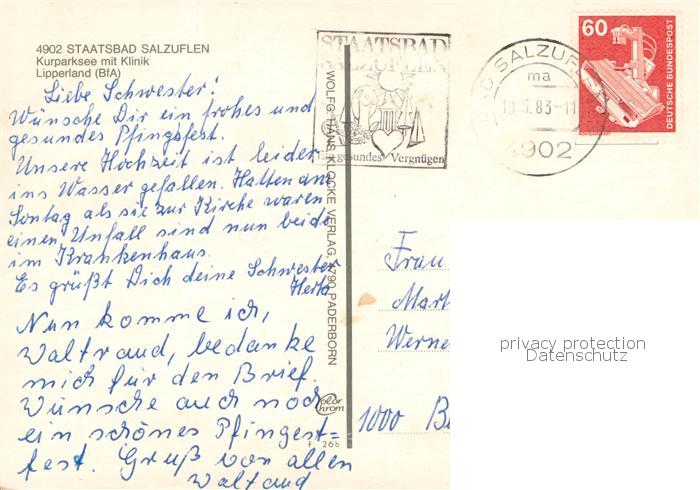 4902 STAATSBAD SALZUFLEN
Kurparksee mit Klinik
Lipperland (BfA)
Liebe Schwester!
Wünsche Dir ein frohes und
gesundes Pfingsfest.
Unsere Hochzeit ist leider
ins Wasser gefallen. Hatten am
Sontag als sie zur Kirche waren
einen Unfall sind nun beide
im Krankenhaus.
Es grüßt Dich deine Schwester
Herta
Nun komme ich,
Waltraud, bedanke
mich für den Brief.
Wünsche auch noch
ein schönes Pfingst=
fest. Gruß von allen
Waltaud
STAATSBAD
SALZUFLEN
gesundes Vergnügen
WOLFG. HANS KLOCKE VERLAG, 4790 PADERBORN
Color
Chrom
268
SALZUF
ma
5.83-11
4902
60
DEUTSCHE BUNDESPOST
Frau
Mart
Werne
1000 Be
privacy protection
Datenschutz